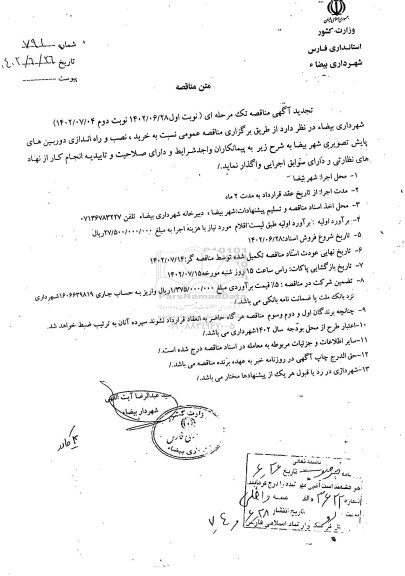 جمهوری اسلامی ایران
وزارت کشور
استانداری فارس
شهرداری بیضاء
شماره ۷۹۱
تاریخ ۱۴۰۲/۶/۲۶
پیوست
متن مناقصه
تجدید آگهی مناقصه تک مرحله ای ( نوبت اول ۱۴۰۲/۰۶/۲۸ نوبت دوم ۱۴۰۲/۰۷/۰۴)
شهرداری بیضاء در نظر دارد از طریق برگزاری مناقصه عمومی نسبت به خرید ، نصب و راه اندازی دوربین های
پایش تصویری شهر بیضاء به شرح زیر به پیمانکاران واجدشرایط و دارای صلاحیت و تاییدیه انجام کار از نهاد
های نظارتی و دارای سوابق اجرایی واگذار نماید./
۱- محل اجرا: شهر بیضا
۲- مدت اجرا: از تاریخ عقد قرارداد به مدت ۲ ماه
۳- محل اخذ اسناد مناقصه و تسلیم پیشنهادات:شهر بیضاء ، دبیرخانه شهرداری بیضاء تلفن ۰۷۱۳۶۷۸۳۲۲۷
۴- برآورد اولیه : برآورد اولیه طبق لیست اقلام مورد نیاز با هزینه اجرا به مبلغ ۲۷/۵۰۰/۰۰۰/۰۰۰ریال
۵- تاریخ شروع فروش اسناد:۱۴۰۲/۰۶/۲۸
۶- تاریخ نهایی عودت اسناد مناقصه تکمیل شده توسط مناقصه گر:۱۴۰۲/۰۷/۱۴
۷- تاریخ بازگشایی پاکات: راس ساعت ۱۵ روز شنبه مورخه ۱۴۰۲/۰۷/۱۵
۸- تضمین شرکت در مناقصه : ۵٪ قیمت برآوردی مبلغ ۱/۳۷۵/۰۰۰/۰۰۰ریال واریز به حساب جاری ۱۶۰۶۶۳۹۸۱۹شهرداری
نزد بانک ملت یا ضمانت نامه بانکی می باشد./
۹- چنانچه برندگان اول و دوم وسوم مناقصه هر گاه حاضر به انعقاد قرارداد نشوند سپرده آنان به ترتیب ضبط خواهد شد.
۱۰-اعتبار طرح از محل بودجه سال ۱۴۰۲شهرداری می باشد./
۱۱-سایر اطلاعات و جزئیات مربوطه به معامله در اسناد مناقصه درج شده است./
۱۲-حق الدرج چاپ آگهی در روزنامه خبر به عهده برنده مناقصه می باشد./
۱۳-شهرداری در رد یا قبول هر یک از پیشنهادها مختار می باشد./
سید عبدالرضا آیت اللهی
شهردار بیضاء
وزارت کشور
باسمه تعالی
تاریخ انتشار ۶/۲۸ و ۷/۴
ParsNamadData